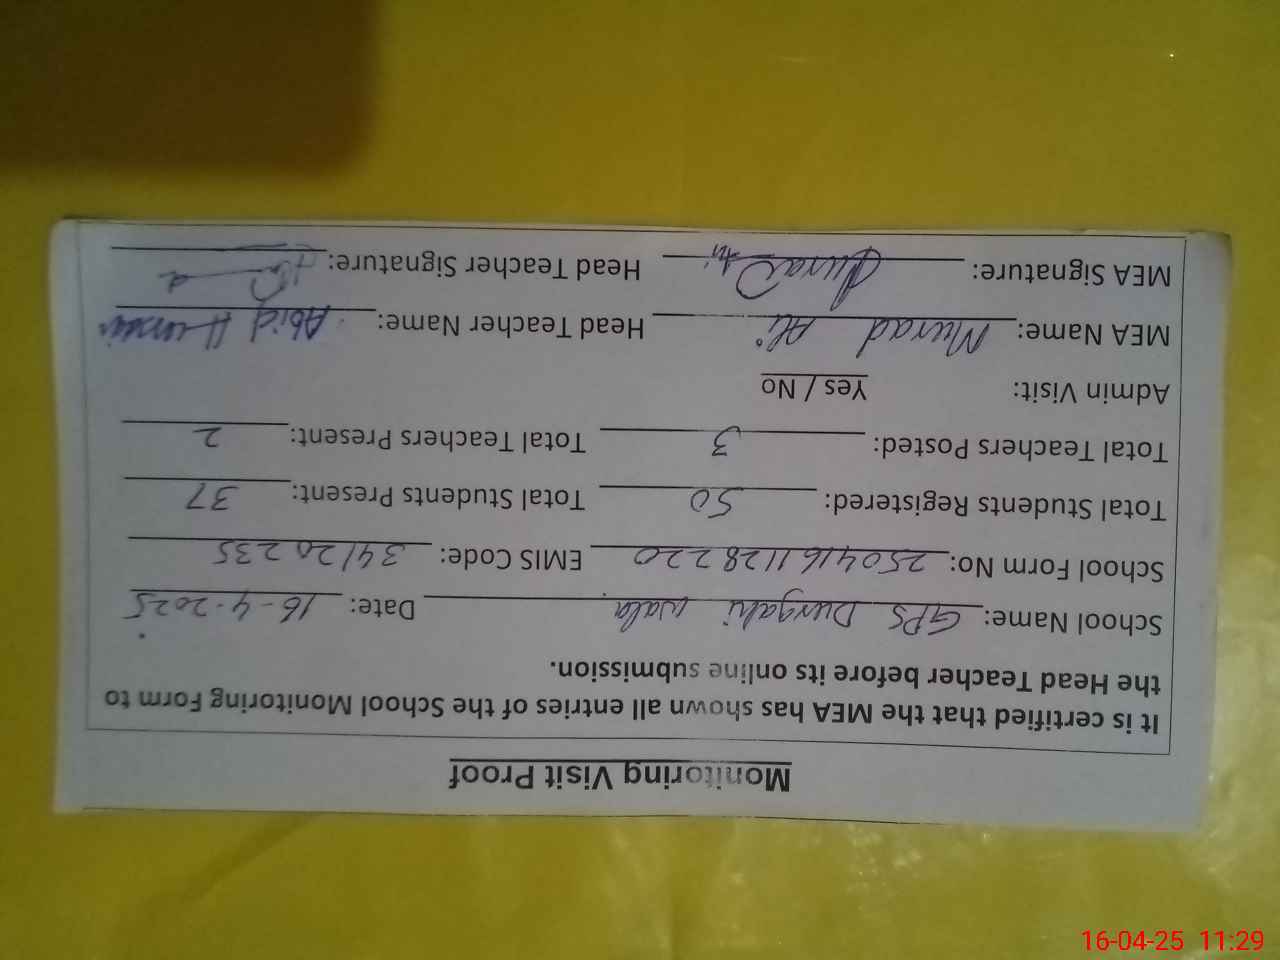 Monitoring Visit Proof
It is certified that the MEA has shown all entries of the School Monitoring Form to
the Head Teacher before its online submission.
School Name: GPS Durgahi wala Date: 16-4-2025
School Form No: 2504161128220 EMIS Code: 34120235
Total Students Registered: 50 Total Students Present: 37
Total Teachers Posted: 3 Total Teachers Present: 2
Admin Visit: Yes / No
MEA Name: Murad Ali Head Teacher Name: Abid Hussain
MEA Signature: Head Teacher Signature:
16-04-25 11:29